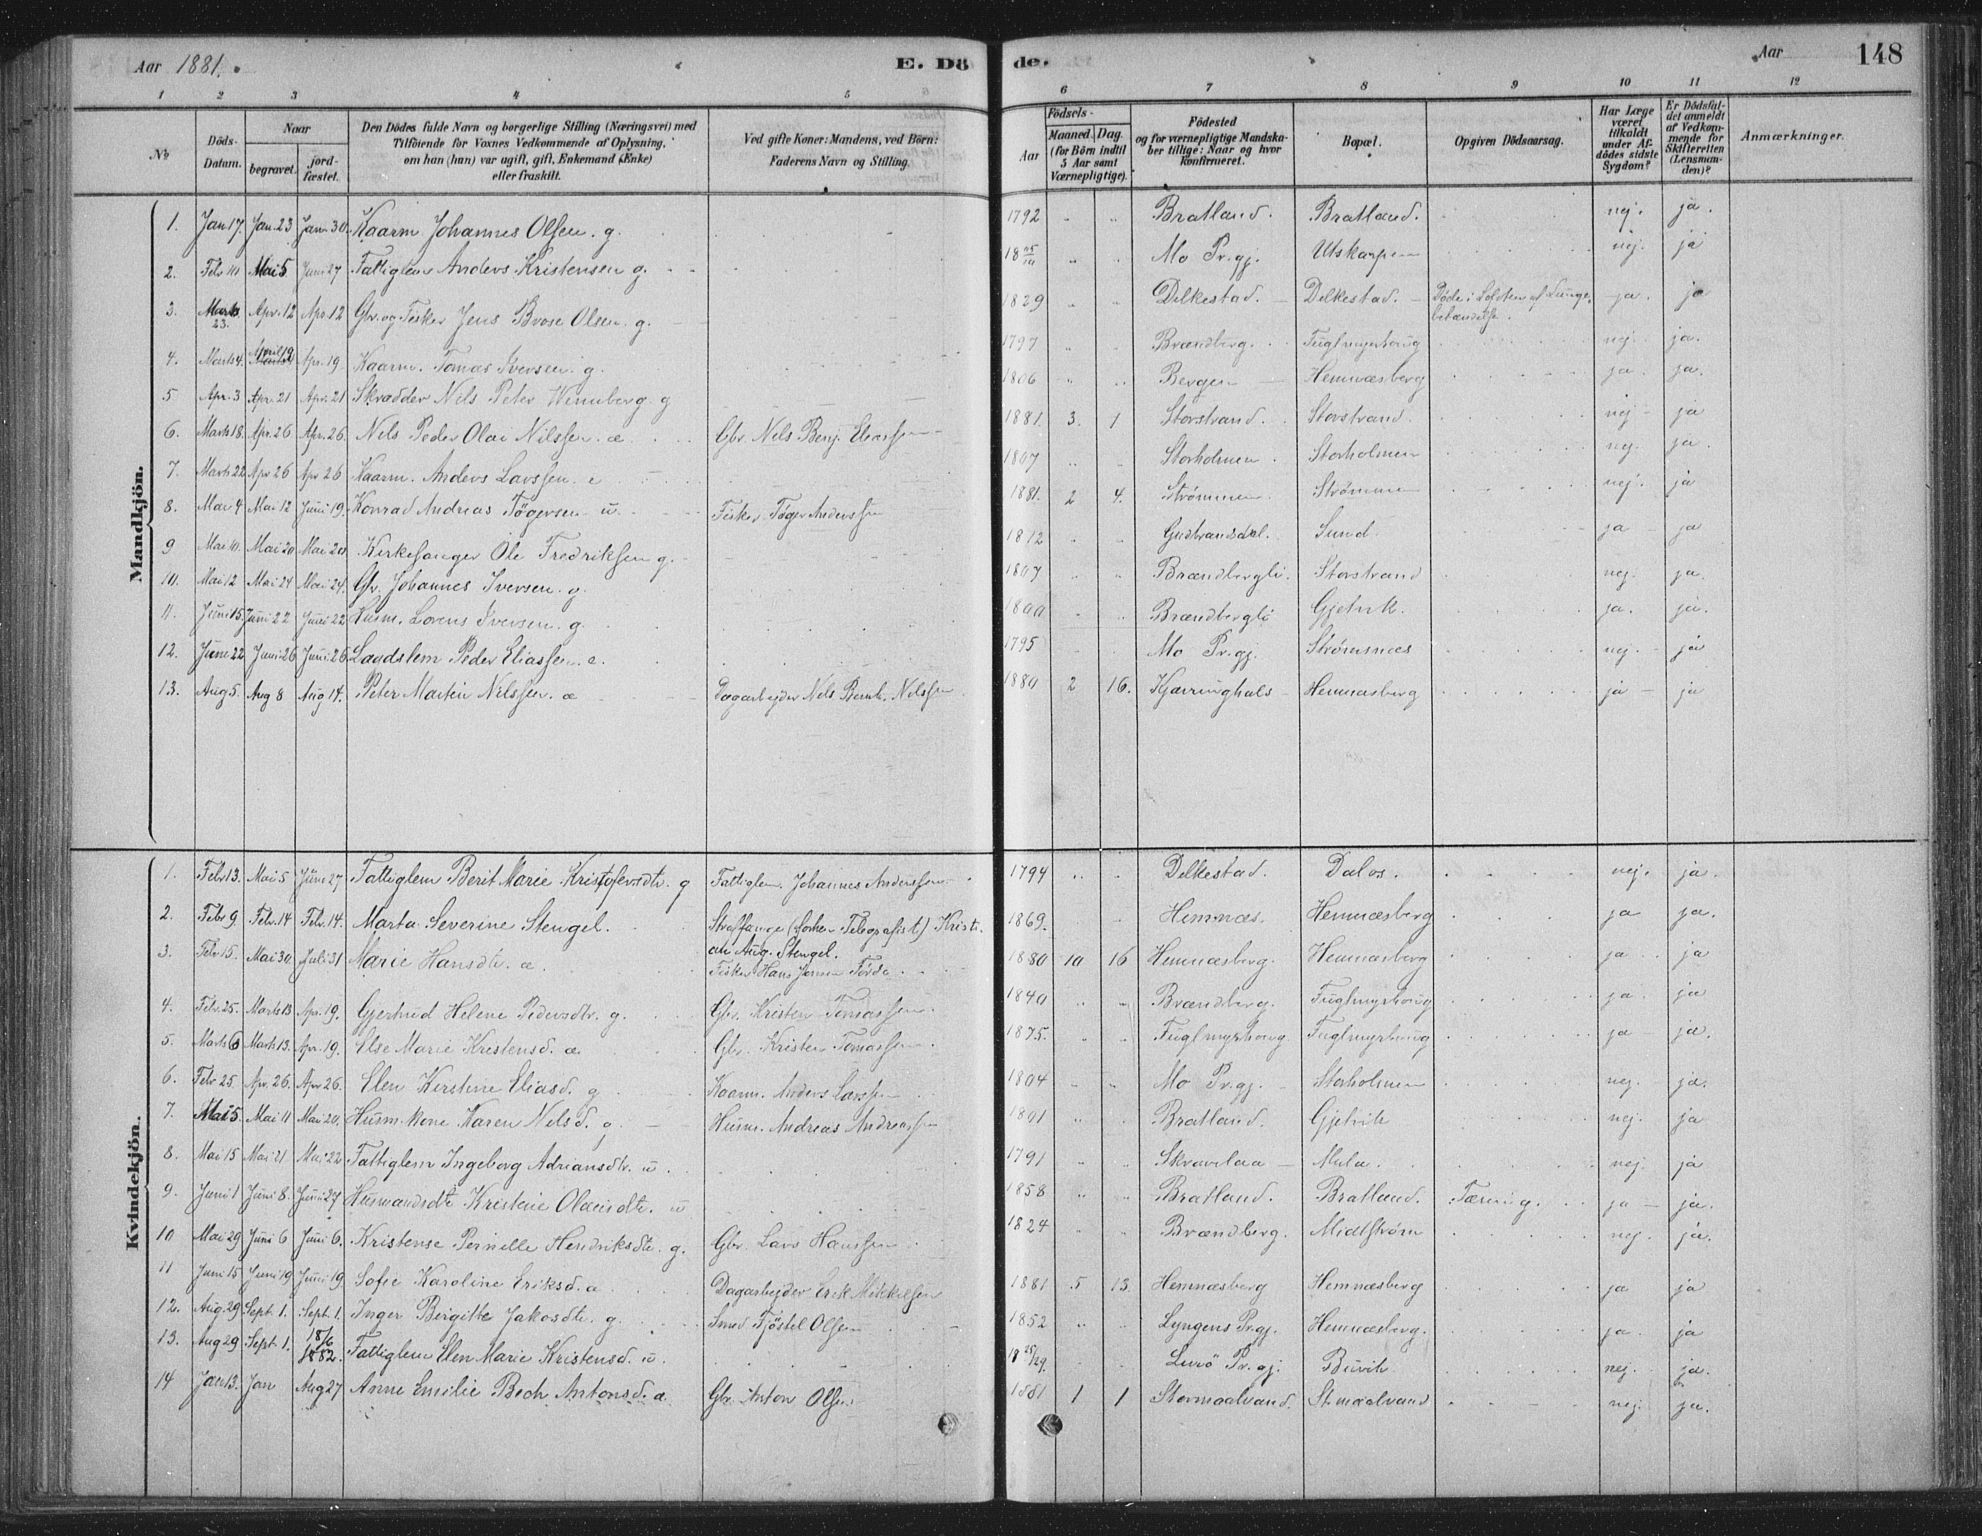 Aar 1881.
E. Dö
de.
Aar
148
1 2 3 4 5 6 7 8 9 10 11 12
№
Döds-Datum.
Naar
begravet.
jord-fæstet.
Den Dödes fulde Navn og borgerlige Stilling (Næringsvei) med
Tilföiende for Voxnes Vedkommende af Oplysning,
om han (hun) var ugift, gift, Enkemand (Enke)
eller fraskilt.
Ved gifte Koner: Mandens, ved Börn:
Faderens Navn og Stilling.
Födsels-
Aar
Maaned. Dag.
(for Börn indtil
5 Aar samt
Værnepligtige).
Födested
og for værnepligtige Mandska-
ber tillige: Naar og hvor
konfirmeret.
Bopæl.
Opgiven Dödsaarsag.
Har Læge
været
tilkaldt
under Af-
dödes sidste
Sygdom?
Er Dödsfal-
det anmeldt
af Vedkom-
mende for
Skifteretten
(Lensman-
den)?
Anmærkninger.
Mandkjön.
1. Jan 17. Jan. 23 Jan. 30. Kaarm Johannes Olsen. g. 1792 Bratland. Bratland. nej. ja.
2. Febr 10 Mai 5 Juni 27 Fattiglem Anders Kristensen g. 18 Mo Pr.gj. Utskarpen nej. ja
3. Marts 23. Apr. 12 Apr. 12 Gbr. og Fisker Jens Brose Olsen. g. 1829 Dilkestad. Dilkestad. Døde i Lofoten af Lunge-
betændelse. ja. ja
4. Marts 4. April 19 Apr. 19 Kaarm. Tomas Iversen. g. 1797 Brændberg. Fuglmyrhoug nej. ja.
5 Apr. 3 Apr. 21 Apr. 21 Skrædder Nils Peter Wennberg. g 1806 Bergen Hemnæsberg ja. ja.
6. Marts 18. Apr. 26 Apr. 26. Nils Peder Olai Nilssen. æ Gbr. Nils Benj. Eliassen 1881. 3. 1 Storstrand. Storstrand. nej ja
7. Marts 22 Apr 26 Apr 26 Kaarm. Anders Larssen. e 1807 Storholmen Storholmen nej. ja.
8. Mai 4 Mai 12 Juni 19. Konrad Andreas Tøgersen u. Fisker Tøger Anderssen 1881. 2 4. Strømmen. Strømmen nej. ja
9 Mai 10. Mai 20 Mai 20. Kirkesanger Ole Fredriksen g. 1812 Gudbrandsdal. Sund. ja ja
10. Mai 12 Mai 24 Mai 24. Gbr. Johannes Iversen. g. 1807 Brændbergli. Storstrand nej. ja.
11. Juni 15. Juni 22 Juni 22 Husm. Lorens Iversen. g. 1800 Brændbergli Gjetvik. ja. ja.
12. Juni 22 Juni 26 Juni 26. Lagdslem Peder Eliassen. e. 1795 Mo Pr.gj. Strømsnæs nej. ja
13. Aug 5. Aug 8 Aug 14. Peter Martin Nilssen. æ Dagarbejder Nils Bernh. Nilssen 1880 2 16. Kjærringhals Hemnæsberg ja ja
Kvindekjön.
1. Febr 13. Mai 5 Juni 27 Fattiglem Berit Marie Kristofersdtr. g Fattiglem. Johannes Anderssen 1794 Dilkestad. Dalos. nej. ja.
2. Febr 9. Febr. 14 Febr. 14. Marta Severine Stengel. Straffange (forhen Telegrafist) Kristi-
an Aug. Stengel. 1869. Hemnæs. Hemnæsberg ja ja.
3. Febr 15. Mai 30. Juli 31 Marie Hansdtr. æ. Fisker Hans Jensen Førde 1880 10 16 Hemnæsberg. Hemnæsberg ja ja
4. Febr. 25. Marts 13 Apr. 19. Gjertrud Helene Pedersdtr. g. Gbr. Kristen Tomassen 1840 Brændberg. Fuglmyrhoug ja. ja
5. Marts 6 Marts 13. Apr. 19. Else Marie Kristensd. æ. Gbr. Kristen Tomassen 1875. Fuglmyrhoug. Fuglmyrhoug ja ja.
6. Febr 25. Apr. 26. Apr 26. Elen Kirstine Eliasd. g Kaarm. Anders Larssen 1804 Mo Pr.gj. Storholmen nej. ja.
7. Mai 5. Mai 11 Mai 20. Husm.kone Karen Nilsd. g. Husm. Andreas Andreassen 1801 Bratland. Gjetvik nej. ja
8. Mai 15 Mai 21 Mai 22 Fattiglem Ingeborg Adriansdtr. u. 1791 Skravlaa Mula. nej. ja
9. Juni 1 Juni 8. Juni 27 Husmandsdtr Kristine Olausdtr. u 1858 Bratland. Bratland. Tæring. ja ja.
10 Mai 29 Juni 6 Juni 6. Kristense Pernille Hendriksdtr. g. Gbr. Lars Hanssen 1824 Brændberg. Midtstrøm nej. ja.
11 Juni 15 Juni 19 Juni 19 Sofie Karoline Eriksd. æ Dagarbejder Erik Mikkelsen 1881 5 13. Hemnæsberg Hemnæsberg ja ja
12. Aug. 29 Sept. 1. Sept. 1. Inger Birgitte Jakobsdtr. g. Smed Fjøstel Olsen 1852 Lyngens Pr.gj. Hemnæsberg. ja. ja
13. Aug 29 Sept. 1 18/6 1882. Fattiglem Elen Marie Kristensd. u. 18 25/29. Lurö Pr.gj. Buvik nej. ja.
14 Jan 13. Jan Aug 27 Anne Emilie Bech Antonsd. æ. Gbr. Anton Olsen 1881 1 1 Stormaalvand. St.maalvand nej. ja.